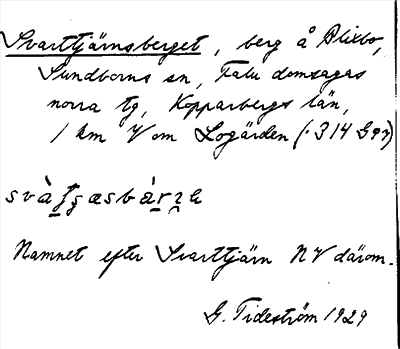 Svarttjärnsberget, berg å Blixbo,
Sundborns sn, Falu domsagas
norra tg, Kopparbergs län,
1 km V om Logärden (· 314 Gsv)
Namnet efter Svarttjärn NV därom.
G. Tideström 1929